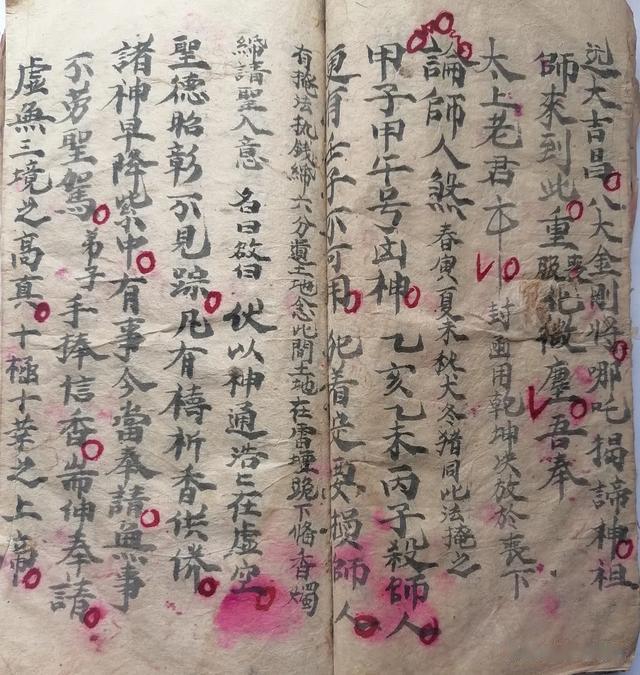 大吉昌八大金剛將哪吒揭諦神祖
師來到此重喪服化微塵吾奉
太上老君
封函用乾坤決放於喪下
論師人煞 春寅夏未秋犬冬猪同此法掩之
甲子甲午号凶神乙亥乙未丙子殺師人
更有 子不可用犯着定要損師人
有掩法执錢締六分遺土地念此間土地在雷壇跪下脩香燭
締請聖入意 名曰啟白 伏以神通浩〻在虛空
聖德昭彰不見踪凡有禱祈香供俻
諸神早降紫中有事今當奉請無事
不劳聖駕弟子手捧信香耑伸奉請
虛無三境之高真十極十華之上帝